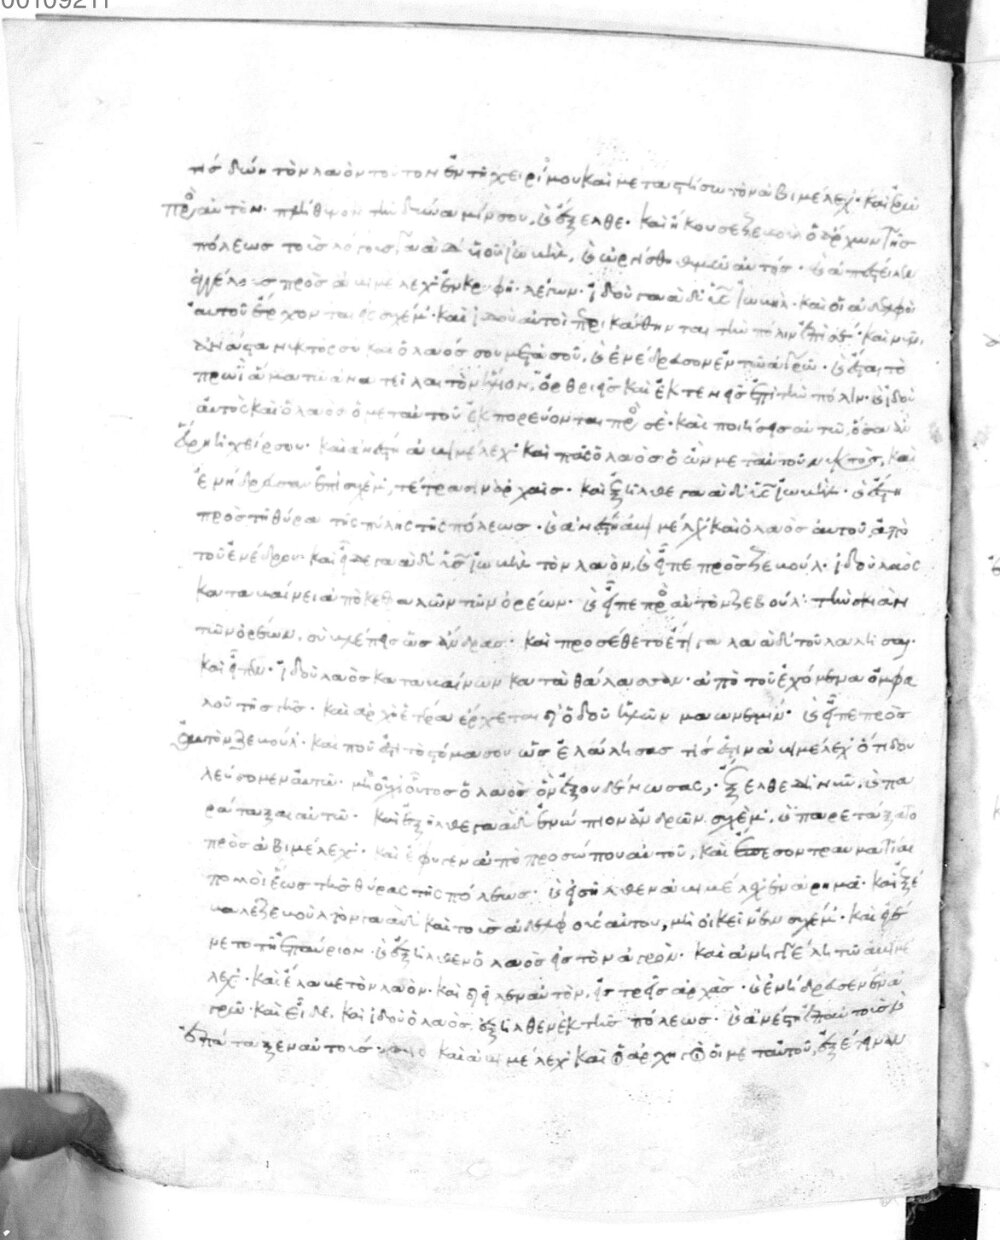 00109211
τίς δώη τὸν λαὸν τοῦτον ἐν τῇ χειρί μου καὶ μεταστήσω τὸν ἀβιμέλεχ· καὶ ἐρῶ
πρὸς αὐτὸν· πλήθυνον τὴν δύναμίν σου, καὶ ἔξελθε· καὶ ἤκουσε ζεβοὺλ ὁ ἄρχων τῆς
πόλεως τοὺς λόγους γαὰδ υἱοῦ ἰωβήλ, καὶ ὠργίσθη θυμῷ αὐτός· καὶ ἀπέστειλεν
ἀγγέλους πρὸς ἀβιμέλεχ ἐν κρυφῇ· λέγων· ἰδοὺ γαὰδ υἱὸς ἰωβήλ· καὶ οἱ ἀδελφοὶ
αὐτοῦ ἔρχονται εἰς συχέμ· καὶ ἰδοὺ αὐτοὶ περικάθηνται τὴν πόλιν ἐπὶ σέ· καὶ νῦν,
ἀνάστα νυκτὸς σὺ καὶ ὁ λαός σου μετὰ σοῦ, καὶ ἐνέδρασον ἐν τῷ ἀγρῷ· καὶ ἔσται τὸ
πρωῒ ἅμα τῷ ἀνατεῖλαι τὸν ἥλιον, ὀρθριεῖς καὶ ἐκτενεῖς ἐπὶ τὴν πόλιν· καὶ ἰδοὺ
αὐτὸς καὶ ὁ λαὸς ὁ μετ αὐτοῦ ἐκπορεύονται πρὸς σέ· καὶ ποιήσεις αὐτῷ, ὅσα ἂν
εὕρῃ ἡ χείρ σου· καὶ ἀνέστη ἀβιμέλεχ· καὶ πᾶς ὁ λαὸς ὁ ὢν μετ αὐτοῦ νυκτός, καὶ
ἐνήδρασαν ἐπὶ συχὲμ, τέτρασιν ἀρχαῖς· καὶ ἐξῆλθε γαὰδ υἱὸς ἰωβήλ· καὶ ἔστη
πρὸς τῇ θύρᾳ τῆς πύλης τῆς πόλεως· καὶ ἀνέστη ἀβιμέλεχ καὶ ὁ λαὸς αὐτοῦ, ἀπὸ
τοῦ ἐνέδρου· καὶ εἶδε γαὰδ υἱὸς ἰωβὴλ τὸν λαὸν, καὶ εἶπε πρὸς ζεβούλ· ἰδοὺ λαὸς
καταβαίνει ἀπὸ κεφαλῶν τῶν ὀρέων· καὶ εἶπε πρὸς αὐτὸν ζεβούλ· τὴν σκιὰν
τῶν ὀρέων, σὺ βλέπεις ὡς ἄνδρας· καὶ προσέθετο ἔτι γαὰδ τοῦ λαλῆσαι·
καὶ εἶπεν· ἰδοὺ λαὸς καταβαίνων κατὰ θάλασσαν· ἀπὸ τοῦ ἐχόμενα ὀμφα
λοῦ τῆς γῆς· καὶ ἀρχὴ ἑτέρα ἔρχεται δι ὁδοῦ ἡλῶν μαωνεμίν· καὶ εἶπε πρὸς
αὐτὸν ζεβούλ· καὶ ποῦ ἐστι τὸ στόμα σου ὡς ἐλάλησας τίς ἐστιν ἀβιμέλεχ ὅτι δου
λεύσομεν αὐτῷ· μὴ οὐχὶ οὗτος ὁ λαὸς ὃν ἐξουδένωσας; ἔξελθε δὴ νῦν, καὶ πα
ράταξαι αὐτῷ· καὶ ἐξῆλθε γαὰδ ἐνώπιον ἀνδρῶν συχέμ· καὶ παρετάξατο
πρὸς ἀβιμέλεχ· καὶ ἔφυγεν ἀπὸ προσώπου αὐτοῦ, καὶ ἔπεσον τραυματίαι
πολλοὶ ἕως τῆς θύρας τῆς πόλεως· καὶ εἰσῆλθεν ἀβιμέλεχ ἐν ἀρημά· καὶ ἐξέ
βαλε ζεβοὺλ τὸν γαὰδ καὶ τοὺς ἀδελφοὺς αὐτοῦ, μὴ οἰκεῖν ἐν συχέμ· καὶ ἐγέ
νετο τῇ ἐπαύριον· καὶ ἐξῆλθεν ὁ λαὸς εἰς τὸν ἀγρόν· καὶ ἀνηγγέλη τῷ ἀβιμέ
λεχ· καὶ ἔλαβε τὸν λαὸν· καὶ διεῖλεν αὐτὸν, εἰς τρεῖς ἀρχάς· καὶ ἐνήδρασεν ἐν ἀ
γρῷ· καὶ εἶδε, καὶ ἰδοὺ ὁ λαὸς, ἐξῆλθεν ἐκ τῆς πόλεως· καὶ ἀνέστη ἐπ αὐτοὺς καὶ
ἐπάταξεν αὐτούς· καὶ ἀβιμέλεχ καὶ αἱ ἀρχαὶ αἱ μετ αὐτοῦ, ἐξέτειναν